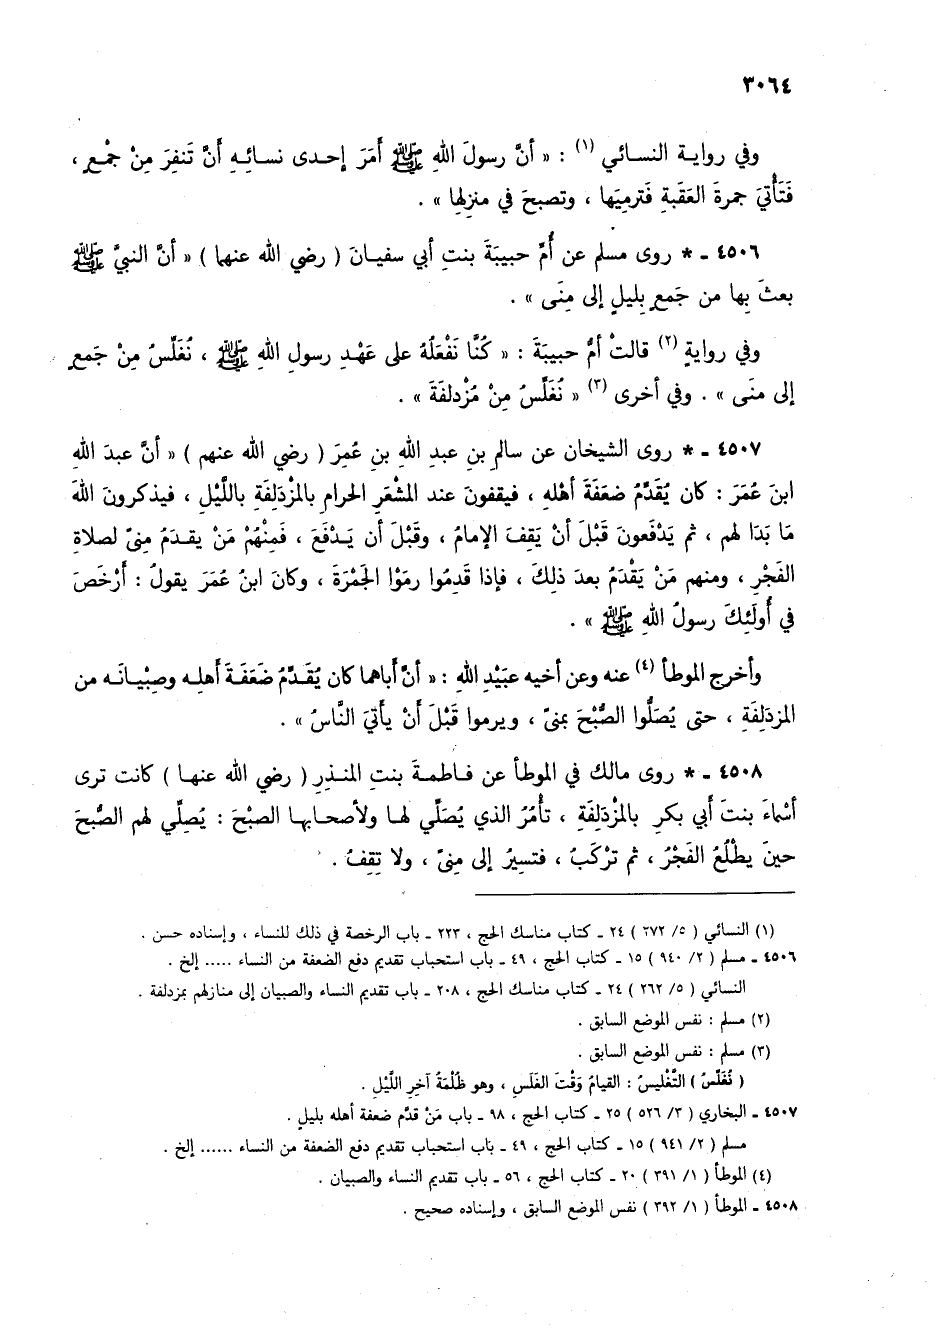 ٣٠٦٤
وفي رواية النسائي (١) : « أنَّ رسولَ اللهِ ﷺ أَمَرَ إحدى نسائِهِ أَنَّ تَنفِرَ مِنْ جَمْعٍ ،
فَتَأْتيَ جمرةَ العَقَبةِ فَترميَها ، وتصبحَ في منزلِها » .
٤٥٠٦ ـ * روى مسلم عن أُمِّ حبيبَةَ بنتِ أبي سفيانَ ( رضي الله عنها ) « أنَّ النبيَّ ﷺ
بعثَ بِها من جَمعٍ بِليلٍ إلى مِنَى » .
وفي روايةٍ (٢) قالتْ أُمُّ حبيبَةَ : « كُنَّا نَفْعَلُهُ على عَهْدِ رسولِ اللهِ ﷺ ، نُغَلِّسُ مِنْ جَمعٍ
إلى منَى » . وفي أخرى (٣) « نُغَلِّسُ مِنْ مُزْدلفَةَ » .
٤٥٠٧ ـ * روى الشيخان عن سالمِ بنِ عبدِ اللهِ بنِ عُمرَ ( رضي الله عنهم ) « أنَّ عبدَ اللهِ
ابنَ عُمَرَ : كان يُقَدِّمُ ضعَفَةَ أهْلهِ ، فيقفونَ عند المشْعَرِ الحرامِ بالمزْدَلِفَةِ باللَّيْلِ ، فيذكرونَ اللهَ
مَا بَدَا لهم ، ثم يَدْفَعونَ قَبْلَ أنْ يَقِفَ الإمامُ ، وقَبْلَ أن يَدْفَعَ ، فَمِنْهُمْ مَنْ يقدَمُ مِنىً لصلاةِ
الفَجْرِ ، ومنهم مَنْ يَقْدَمُ بعدَ ذلِكَ ، فإذا قَدِمُوا رمَوْا الجَمْرَةَ ، وكانَ ابنُ عُمَرَ يقولُ : أَرْخَصَ
في أُولَئِكَ رسولُ اللهِ ﷺ » .
وأخرج الموطأ (٤) عنه وعن أخيه عبَيْدِ اللهِ : « أنَّ أباهما كان يُقَدِّمُ ضَعَفَةَ أهلِه وصِبْيانَه من
المزدَلِفَةِ ، حتى يُصَلُّوا الصُّبْحَ بمنىً ، ويرموا قَبْلَ أنْ يأتيَ النَّاسُ » .
٤٥٠٨ ـ * روى مالك في الموطأ عن فاطمةَ بنتِ المنذِرِ ( رضي الله عنها ) كانت ترى
أسْماءَ بنتَ أبي بكرٍ بالمزْدَلِفَةِ ، تأمُرُ الذي يُصَلِّي لها ولأصحابِها الصبْحَ : يُصلِّي لهم الصُّبحَ
حينَ يطْلُعُ الفَجْرُ ، ثم تَرْكَبُ ، فتسيرُ إلى مِنىً ، ولا تقِفُ .
(١) النسائي ( ٥/ ٢٧٢ ) ٢٤ ـ كتاب مناسك الحج ، ٢٢٣ ـ باب الرخصة في ذلك للنساء ، وإسناده حسن .
٤٥٠٦ ـ مسلم ( ٢/ ٩٤٠ ) ١٥ ـ كتاب الحج ، ٤٩ ـ باب استحباب تقديم دفع الضعفة من النساء ..... إلخ .
النسائي ( ٥/ ٢٦٢ ) ٢٤ ـ كتاب مناسك الحج ، ٢٠٨ ـ باب تقديم النساء والصبيان إلى منازلهم بمزدلفة .
(٢) مسلم : نفس الموضع السابق .
(٣) مسلم : نفس الموضع السابق .
( نُغَلِّسُ ) التَّغْليسُ : القيامُ وَقْتَ الغَلَسِ ، وهو ظُلْمَةُ آخِرِ اللَّيْلِ .
٤٥٠٧ ـ البخاري ( ٣/ ٥٢٦ ) ٢٥ ـ كتاب الحج ، ٩٨ ـ باب مَنْ قدَّم ضعفة أهله بليلٍ .
مسلم ( ٢/ ٩٤١ ) ١٥ ـ كتاب الحج ، ٤٩ ـ باب استحباب تقديم دفع الضعفة من النساء ...... إلخ .
(٤) الموطأ ( ١/ ٣٩١ ) ٢٠ ـ كتاب الحج ، ٥٦ ـ باب تقديم النساء والصبيان .
٤٥٠٨ ـ الموطأ ( ١/ ٣٩٢ ) نفس الموضع السابق ، وإسناده صحيح .